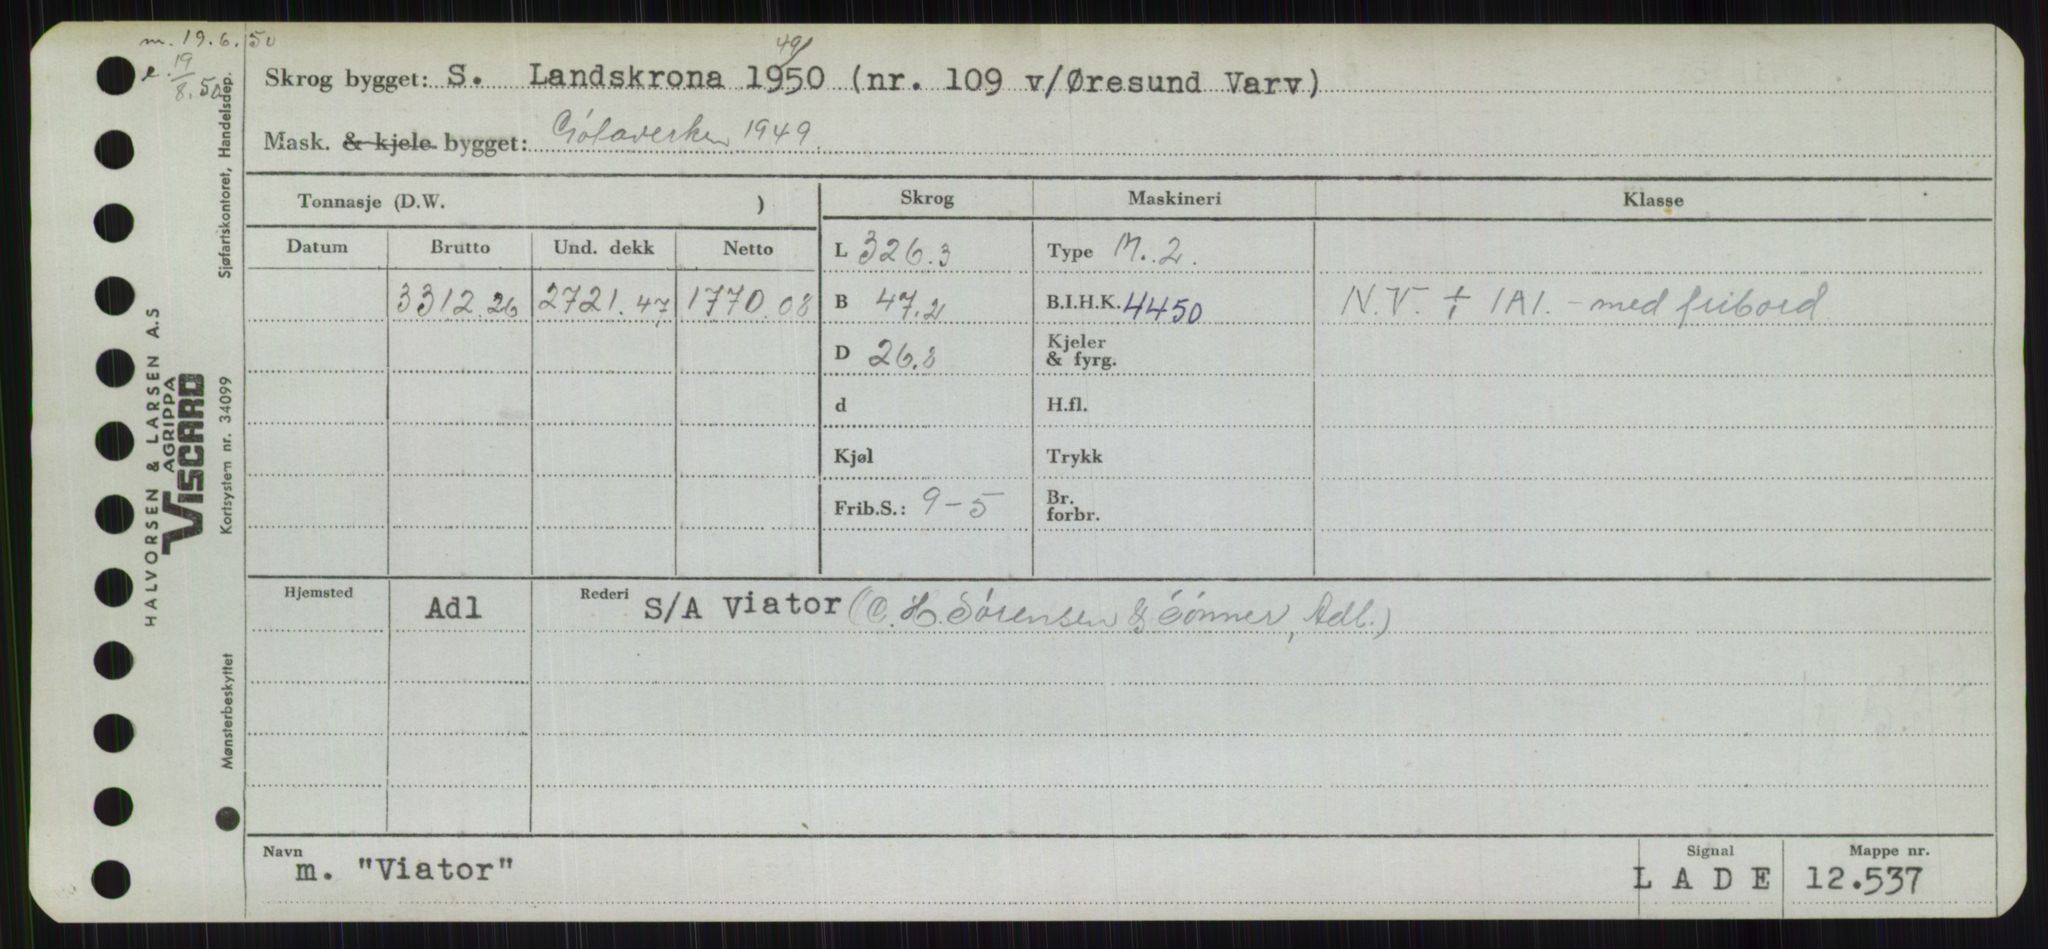 m. 19.6.50
e. 19/8.50
49/
Skrog bygget: S. Landskrona 1950 (nr. 109 v/Øresund Varv)
Mask. & kjele bygget: Götaverken 1949.
Tonnasje (D.W. )
Skrog Maskineri Klasse
Datum Brutto Und. dekk Netto
L 326.3 Type M. 2.
3312.26 2721.47 1770.08 B 47.2 B.I.H.K. 4450 N.V. + 1A1. - med fribord
D 26.8 Kjeler & fyrg.
d H.fl.
Kjøl Trykk
Frib.S.: 9-5 Br. forbr.
Hjemsted Adl Rederi S/A Viator (C. H. Sörensen & Sönner, Adl.)
Navn m. "Viator" Signal L A D E Mappe nr. 12.537
HALVORSEN & LARSEN A.S
AGRIPPA
VISCARD
Sjøfartskontoret, Handelsdep.
Kortsystem nr. 34099
Mønsterbeskyttet